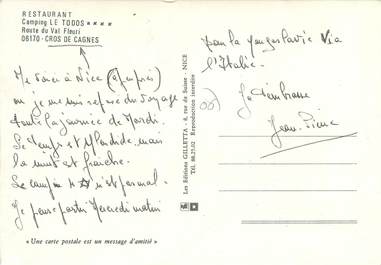 RESTAURANT
Camping LE TODOS ★★★★
Route du Val Fleuri
06170 - CROS DE CAGNES
Me voici à Nice (à peu près)
où je me suis reposé du voyage
toute la journée de Mardi.
Le temps est splendide, mais
la nuit est fraîche.
Le camping 4 ★ n'est pas mal.
Je pense partir Mercredi matin
« Une carte postale est un message d'amitié »
Les Editions GILLETTA - 6, rue de Suisse - NICE
Tél. 88.25.02 Reproduction interdite
pour la Yougoslavie Via
l'Italie.
Je t'embrasse
Jean-Pierre